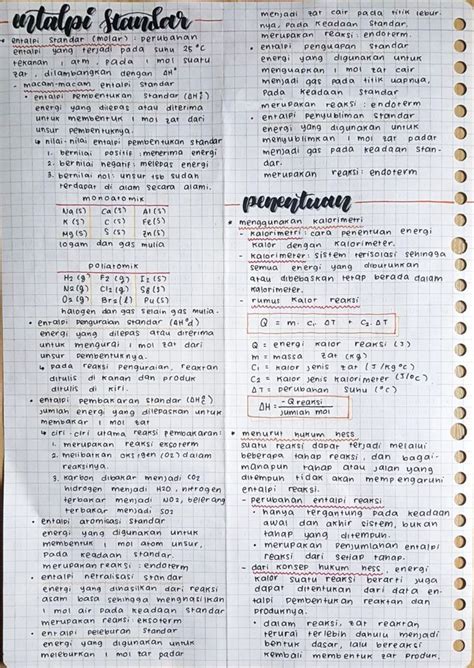 entalpi standar
• entalpi standar (molar) : perubahan
entalpi yang terjadi pada suhu 25°C
tekanan 1 atm, pada 1 mol suatu
zat, dilambangkan dengan ΔH°
- macam-macam entalpi standar
• entalpi pembentukan standar (ΔH°f)
energi yang dilepas atau diterima
untuk membentuk 1 mol zat dari
unsur pembentuknya.
↳ nilai-nilai entalpi pembentukan standar
1. bernilai positif : menerima energi
2. bernilai negatif : melepas energi
3. bernilai nol : unsur tsb sudah
terdapat di alam secara alami.
monoatomik
Na(s) Ca(s) Al(s)
K(s) C(s) Fe(s)
Mg(s) S(s) Zn(s)
logam dan gas mulia
poliatomik
H2(g) F2(g) I2(s)
N2(g) Cl2(g) S8(s)
O2(g) Br2(l) P4(s)
halogen dan gas selain gas mulia.
• entalpi penguraian standar (ΔH°d)
energi yang dilepas atau diterima
untuk mengurai 1 mol zat dari
unsur pembentuknya.
↳ pada reaksi penguraian, reaktan
ditulis di kanan dan produk
ditulis di kiri.
• entalpi pembakaran standar (ΔH°c)
jumlah energi yang dilepaskan untuk
membakar 1 mol zat
↳ ciri-ciri utama reaksi pembakaran:
1. merupakan reaksi eksoterm
2. melibatkan oksigen (O2) dalam
reaksinya.
3. karbon dibakar menjadi CO2
hidrogen menjadi H2O, nitrogen
terbakar menjadi NO2, belerang
terbakar menjadi SO2
• entalpi atomisasi standar
energi yang digunakan untuk
membentuk 1 mol atom unsur
pada keadaan standar.
merupakan reaksi : endoterm
• entalpi netralisasi standar
energi yang dihasilkan dari reaksi
asam basa sehingga menghasilkan
1 mol air pada keadaan standar
merupakan reaksi eksoterm
• entalpi peleburan standar
energi yang digunakan untuk
meleburkan 1 mol zat padat
menjadi zat cair pada titik lebur-
nya, pada keadaan standar.
merupakan reaksi : endoterm.
• entalpi penguapan standar
energi yang digunakan untuk
menguapkan 1 mol zat cair
menjadi gas pada titik uapnya,
pada keadaan standar
merupakan reaksi : endoterm
• entalpi penyubliman standar
energi yang digunakan untuk
menyublimkan 1 mol zat padat
menjadi gas pada keadaan stan-
dar.
merupakan reaksi : endoterm
penentuan
• menggunakan kalorimetri
- kalorimetri : cara penentuan energi
kalor dengan kalorimeter.
- kalorimeter : sistem terisolasi sehingga
semua energi yang dibutuhkan
atau dibebaskan tetap berada dalam
kalorimeter.
- rumus kalor reaksi
Q = m. C1. ΔT + C2. ΔT
Q = energi kalor reaksi (J)
m = massa zat (kg)
C1 = kalor jenis zat (J/kg°C)
C2 = kalor jenis kalorimeter (J/°C)
ΔT = perubahan suhu (°C)
ΔH = -Qreaksi
jumlah mol
• menurut hukum hess
suatu reaksi dapat terjadi melalui
beberapa tahap reaksi, dan bagai-
manapun tahap atau jalan yang
ditempuh tidak akan mempengaruhi
entalpi reaksi.
- perubahan entalpi reaksi
• hanya tergantung pada keadaan
awal dan akhir sistem, bukan
tahap yang ditempuh.
• merupakan penjumlahan entalpi
reaksi dari setiap tahap.
- dari konsep hukum hess, energi
kalor suatu reaksi berarti juga
dapat ditentukan dari data en-
talpi pembentukan reaktan dan
produknya.
• dalam reaksi, zat reaktan
terurai terlebih dahulu menjadi
bentuk dasar, lalu bereaksi
kembali membentuk zat produk.